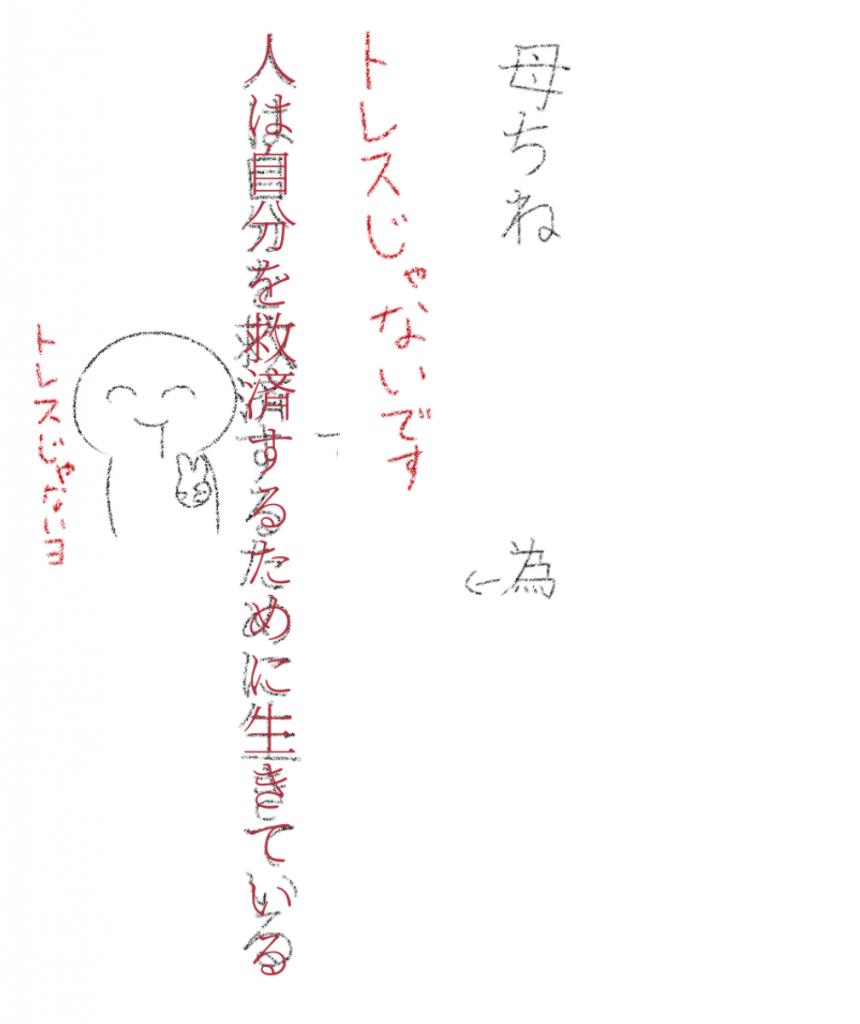 母ちね
←為
トレスじゃないです
人は自分を救済するために生きている
トレスじゃないヨ